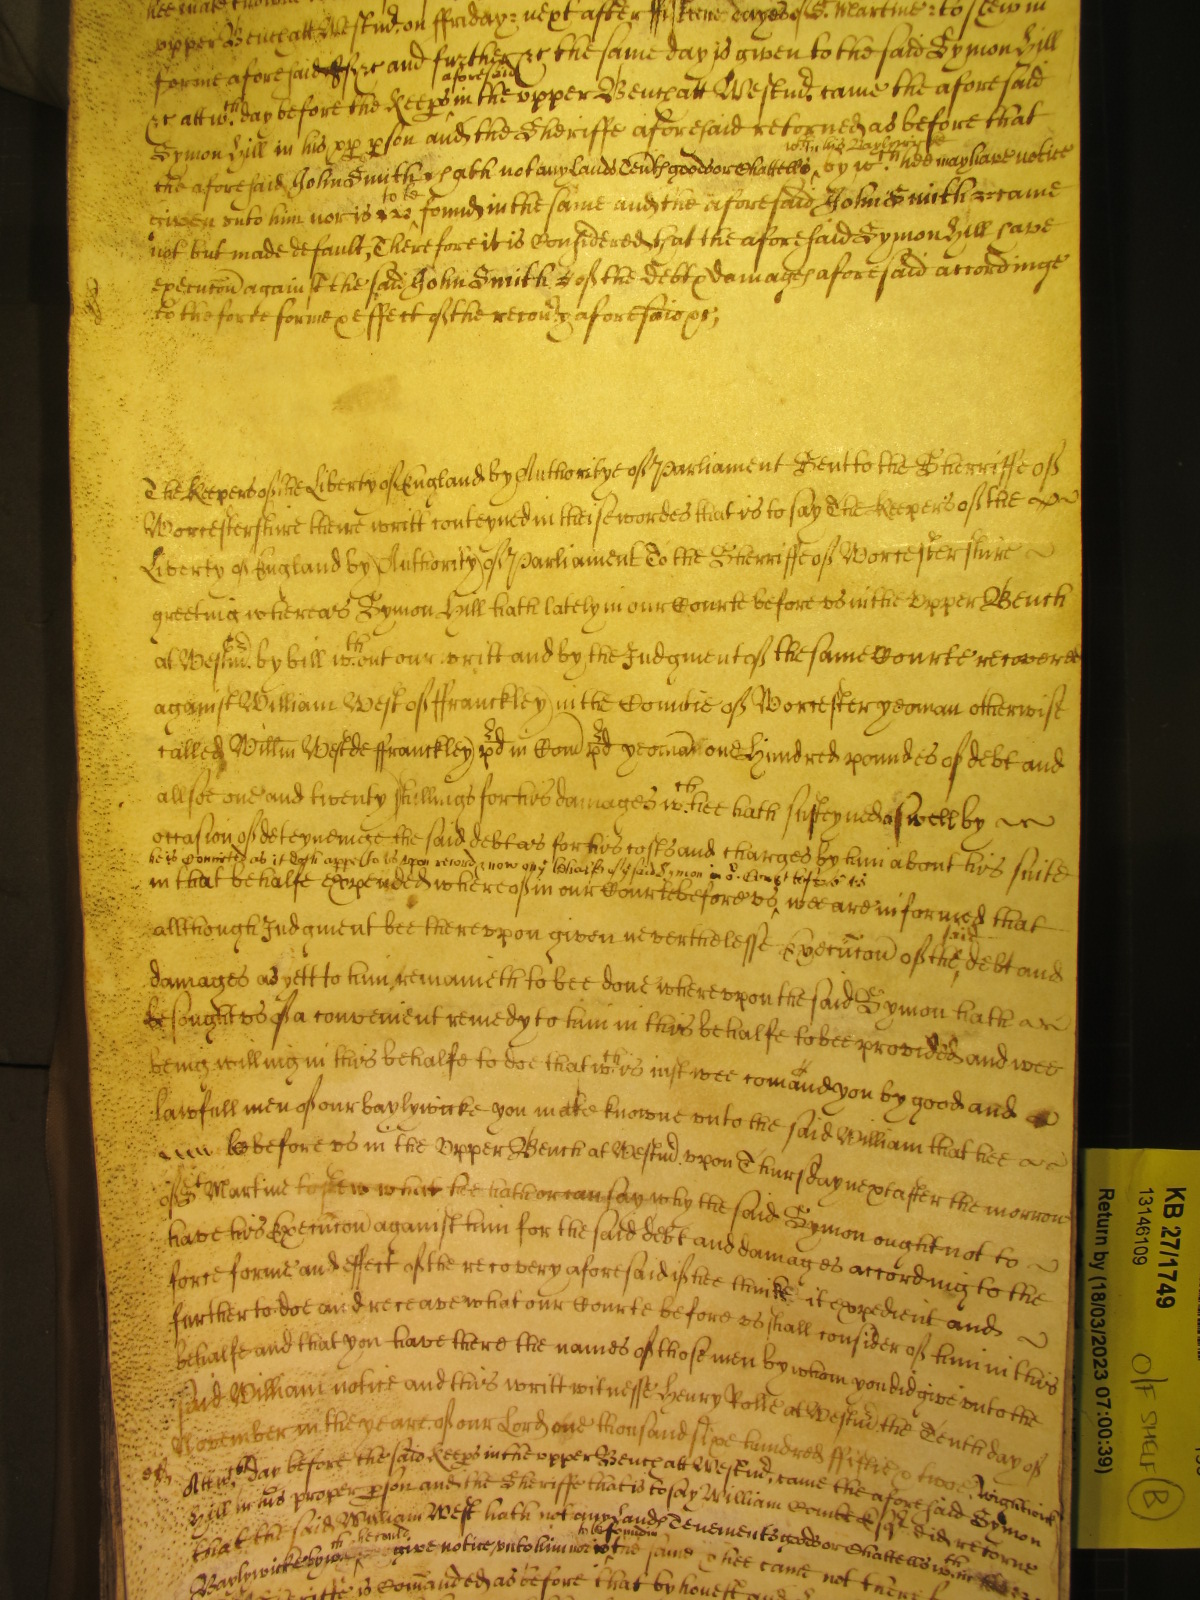 upper Bench att Westmr. on ffriday next after fifteene dayes of St. Martine to shew in
forme aforesaid &c and further &c the same day is given to the said Symon Hill
&c att wch. day before the Keeps aforesaid in the upper Bench att Westmr. came the aforesaid
Symon Hill in his pp pson and the Sheriffe aforesaid returned as before that
the aforesaid John Smith hath not any lands Tents goods or Chattells wthin his Baylywicke by wch. hee may have notice
given unto him nor is to be found in the same and the aforesaid John Smith came
not but made default, Therefore it is Considered that the aforesaid Symon Hill have
execucon against the said John Smith of the Debt & damages aforesaid accordinge
to the force forme & effect of the recovy aforesaid &c;
The Keepers of the Liberty of England by Authoritye of Parliament Sent to the Sherriffe of
Worcestershire theire writt conteyned in theise wordes that is to say The Keepers of the
Liberty of England by Authority of Parliament To the Sherriffe of Worcestershire
greeting whereas Symon Hill hath lately in our Courte before us in the Upper Bench
at Westmr. by bill wthout our writt and by the Judgment of the same Courte recovered
against William West of ffranckley in the Countie of Worcester yeoman otherwise
called Willm West de ffranckley pd in Com pd yeoman one Hundred poundes of debt and
allsoe one and twenty shillings for his damages wch hee hath susteyned aswell by
occasion of deteyneinge the said debt as for his costs and charges by him about his suite
he is Convicted as it doth appe to us upon record now on ye behalfe of ye said Symon in or. Court before us
in that behalfe Expended whereof in our Courte before us, wee are informed that
allthough Judgment bee thereupon given neverthelesse Execucon of the said debt and
damages as yett to him remaineth to bee done whereupon the said Symon hath
besought us of a convenient remedy to him in this behalfe to bee provided and wee
being willing in this behalfe to doe that wch is just wee comaund you by good and
lawfull men of our baylywicke you make knowne unto the said William that hee
bee before us in the Upper Bench at Westmr. upon Thursday next after the morrow
of St Martine to shew what hee hath or can say why the said Symon ought not to
have his Execucon against him for the said debt and damages according to the
force forme and effect of the recovery aforesaid if hee thinke it expedient and
further to doe and receave what our Courte before us shall consider of him in this
behalfe and that you have there the names of those men by whom you did give unto the
said William notice and this writt witnesse Henry Rolle at Westmr the Tenth day of
November in the yeare of our Lord one thousand sixe hundred ffiftie & two, Wightwick
Att wch day before the said Keeps in the upper Bench att Westmr, came the aforesaid Symon
Hill in his proper pson and the Sheriffe that is to say William Esqr did returne
that the said William West hath not any Lands Tenements goods or Chattells wthin
Baylywicke by wch he could give notice, unto him nor is to be found in the same & hee came not
is Comanded as before that by honest and
KB 27/1749
13146109
Return by (18/03/2023 07:00:39)
O/F SHELF B